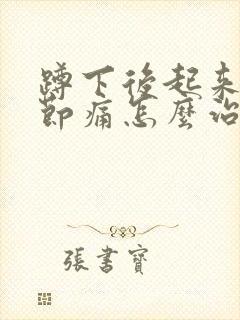 蹲下後起來
節痛怎麼治
張書寶